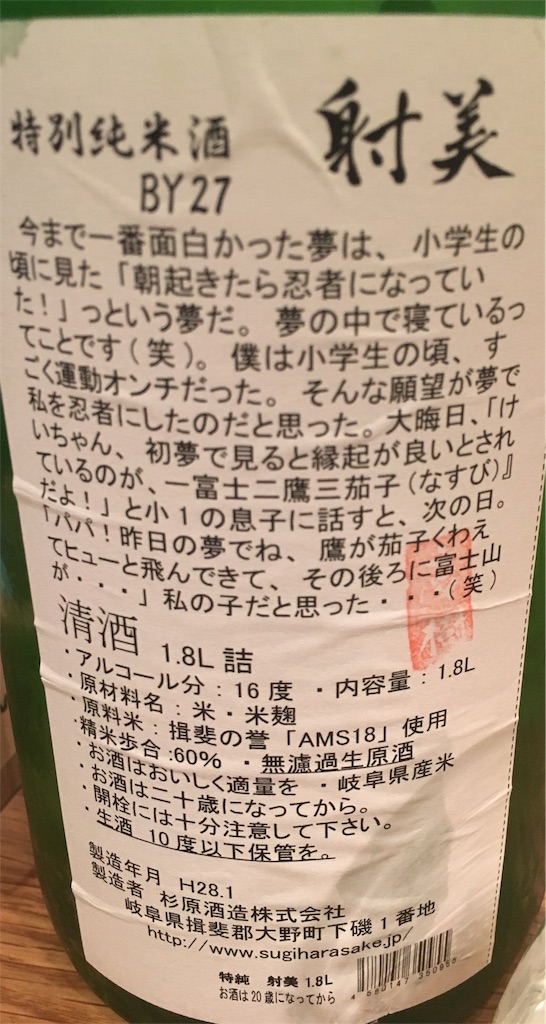 射美
特別純米酒
BY27
今まで一番面白かった夢は、小学生の
頃に見た「朝起きたら忍者になってい
た！」っという夢だ。夢の中で寝ているっ
てことです(笑)。僕は小学生の頃、す
ごく運動オンチだった。そんな願望が夢で
私を忍者にしたのだと思った。大晦日、「け
いちゃん、初夢で見ると縁起が良いとされ
ているのが、一富士二鷹三茄子(なすび)』
だよ！」と小1の息子に話すと、次の日。
「パパ！昨日の夢でね、鷹が茄子くわえ
てヒューと飛んできて、その後ろに富士山
が・・・」私の子だと思った・・・(笑)
清酒 1.8L 詰
・アルコール分：16度 ・内容量：1.8L
・原材料名：米・米麹
・原料米：揖斐の誉「AMS18」使用
・精米歩合:60% ・無濾過生原酒
・お酒はおいしく適量を ・岐阜県産米
・お酒は二十歳になってから。
・開栓には十分注意して下さい。
・生酒 10度以下保管を。
製造年月 H28.1
製造者 杉原酒造株式会社
岐阜県揖斐郡大野町下磯1番地
http://www.sugiharasake.jp/
特純 射美 1.8L
お酒は20歳になってから